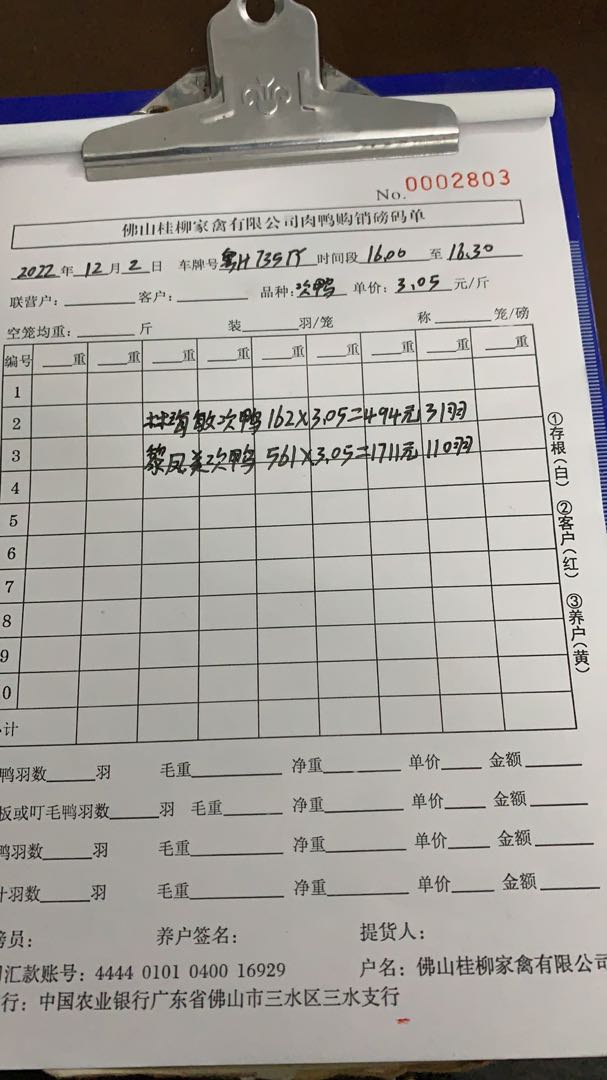 No. 0002803
佛山桂柳家禽有限公司肉鸭购销磅码单
2022年12月2日 车牌号 时间段16.00至16.30
联营户: 客户: 品种:次鸭 单价:3.05元/斤
空笼均重: 斤 装 羽/笼 称 笼/磅
编号 重 重 重 重 重 重 重 重
1
2 林 敏次鸭 162×3.05=494元 31羽
3 黎凤英次鸭 561×3.05=1711元 110羽
4
5
6
7
8
9
0
计
①存根(白) ②客户(红) ③养户(黄)
鸭羽数 羽 毛重 净重 单价 金额
板或叮毛鸭羽数 羽 毛重 净重 单价 金额
鸭羽数 羽 毛重 净重 单价 金额
计羽数 羽 毛重 净重 单价 金额
磅员: 养户签名: 提货人:
汇款账号: 4444 0101 0400 16929 户名: 佛山桂柳家禽有限公司
行: 中国农业银行广东省佛山市三水区三水支行